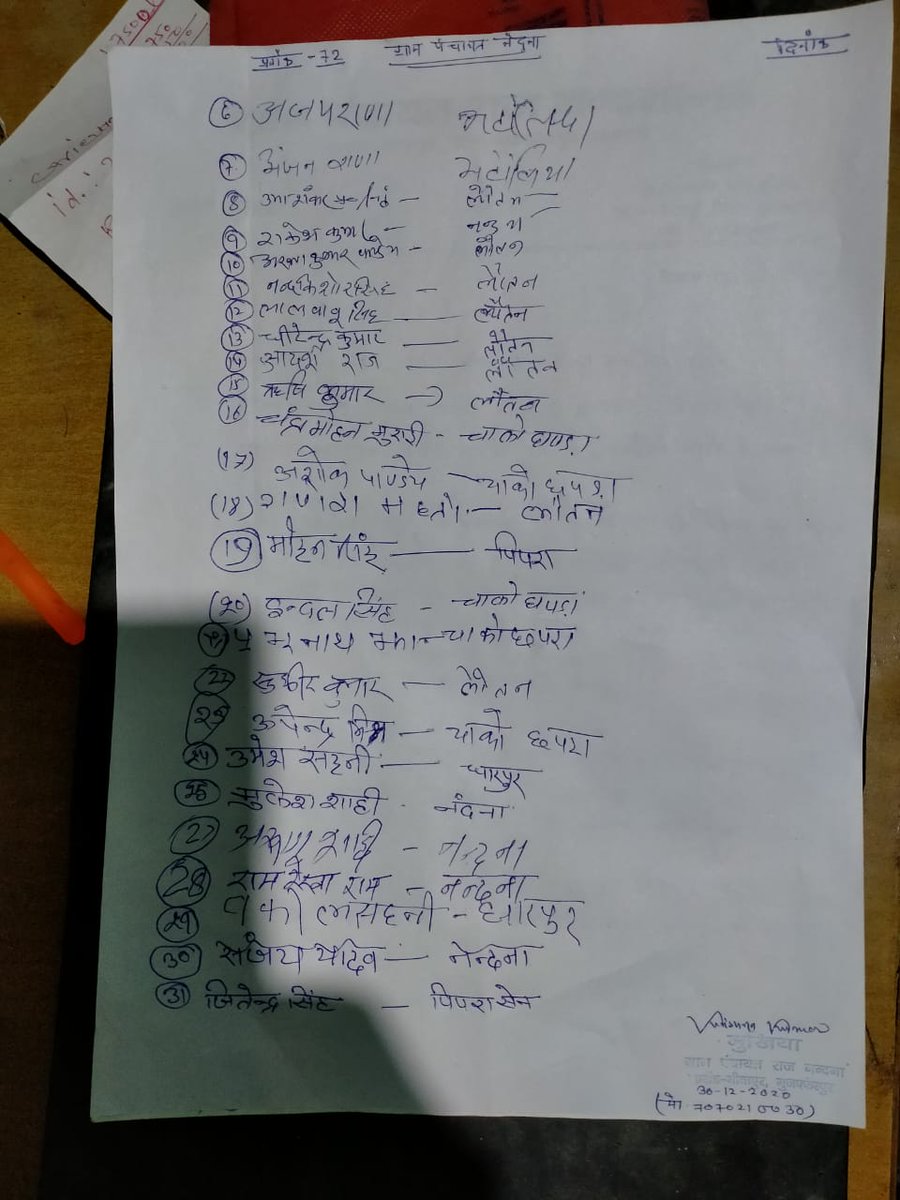 id.: 2
प्रपत्र -72 ग्राम पंचायत नंदना दिनांक
(6) अजय राणा
(7) अंजन राणा
(8) लौतन
(9) राकेश कुमार -
(10) अरूण कुमार पाण्डेय - लौतन
(11) नन्दकिशोर सिंह - लौतन
(12) लालबाबू सिंह — लौतन
(13) वीरेन्द्र कुमार — लौतन
(14) आदर्श राज — लौतन
(15) ऋषि कुमार → लौतन
(16) चंद्रमोहन मुरारी - चाको छपड़ा
(17) अशोक पाण्डेय — चाको छपरा
(18) गणेश महतो — लौतन
(19) मोहन सिंह — पिपरा
(20) इन्दल सिंह - चाको छपड़ा
चाको छपरा
22 सुधीर कुमार — लौतन
23 उपेन्द्र मिश्र — चाको छपरा
24 उमेश सहनी — धारपुर
25 मुकेश शाही - नंदना
27 अरूण शाही - नन्दना
28 राम रेखा राम - नन्दना
29 वकील सहनी - धारपुर
30 संजय यादव — नन्दना
31 जितेन्द्र सिंह — पिपरासेन
Kumar
मुखिया
ग्राम पंचायत राज नन्दना
30-12-2020
(मो 7070210030)